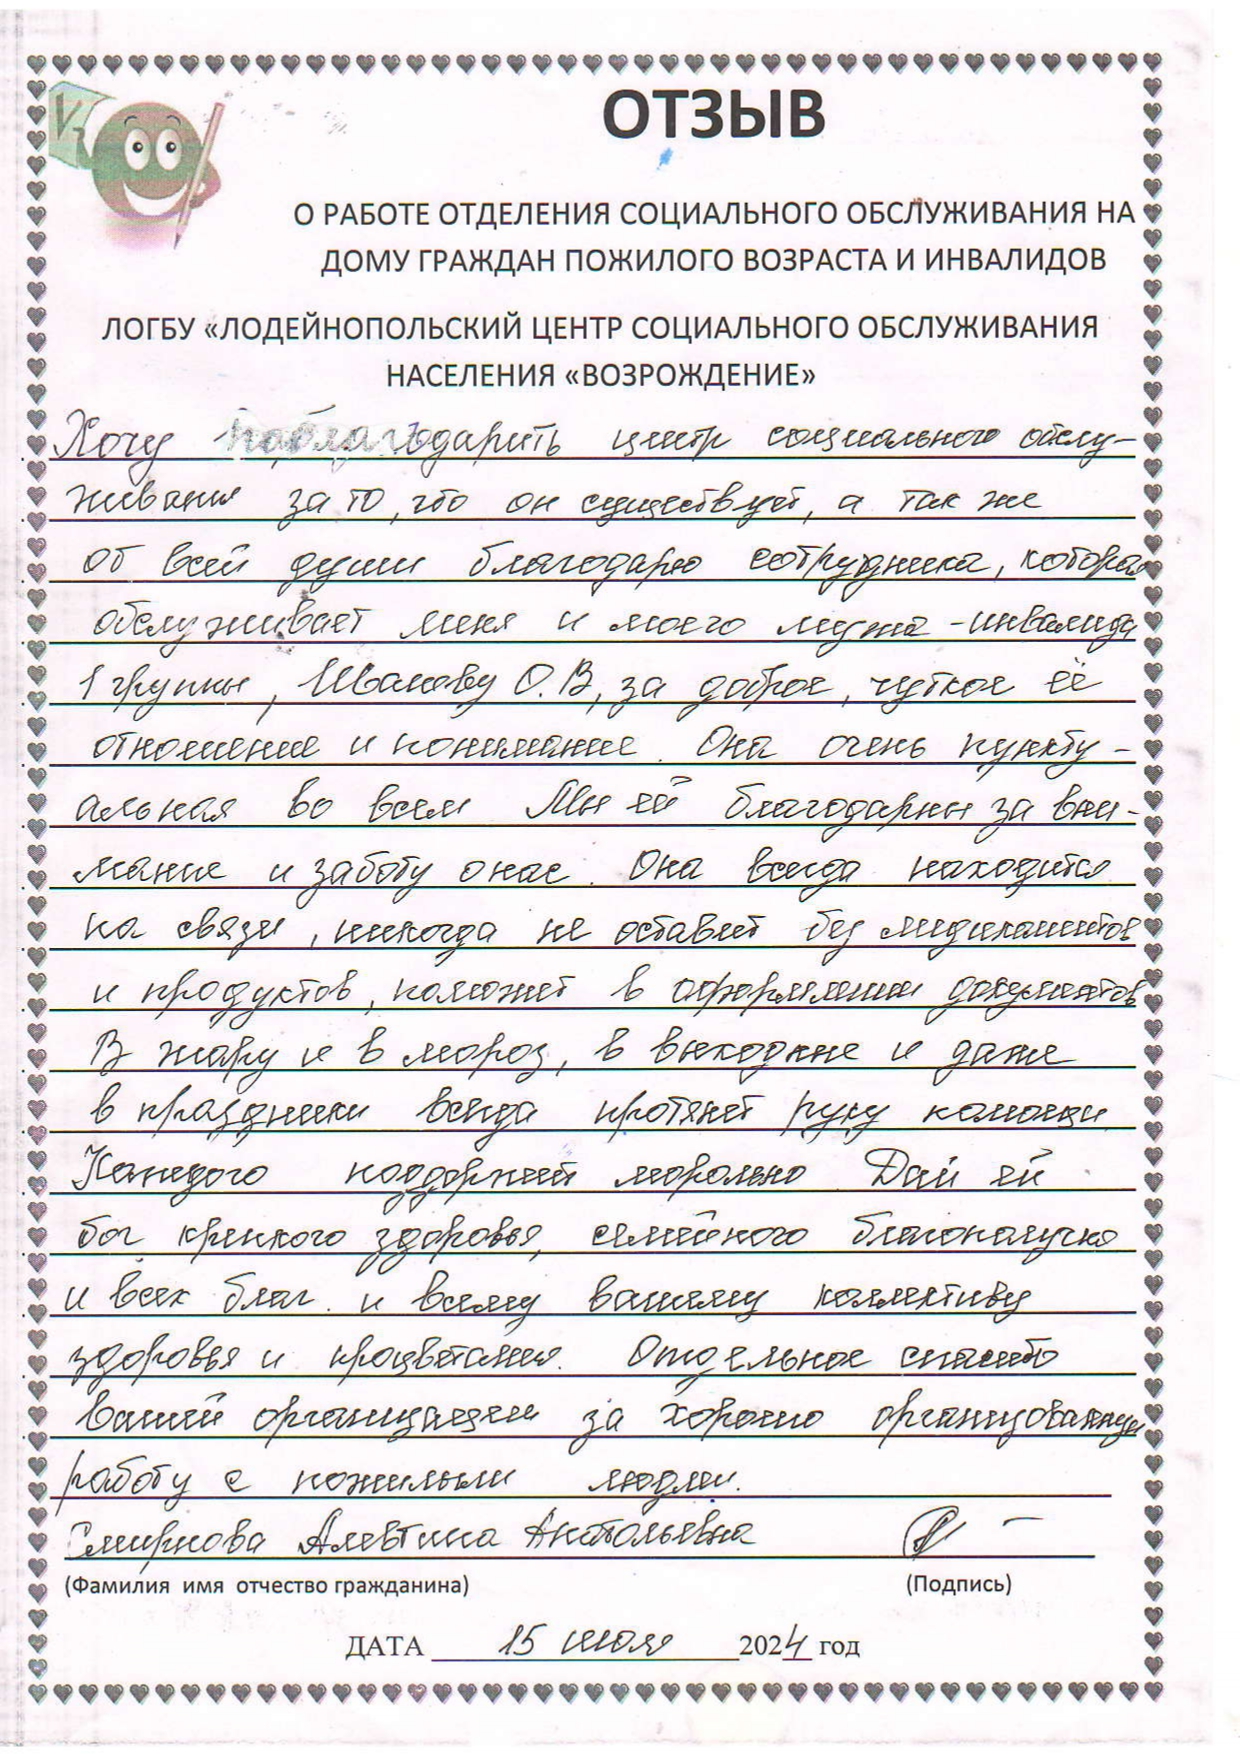 ОТЗЫВ
О РАБОТЕ ОТДЕЛЕНИЯ СОЦИАЛЬНОГО ОБСЛУЖИВАНИЯ НА
ДОМУ ГРАЖДАН ПОЖИЛОГО ВОЗРАСТА И ИНВАЛИДОВ
ЛОГБУ «ЛОДЕЙНОПОЛЬСКИЙ ЦЕНТР СОЦИАЛЬНОГО ОБСЛУЖИВАНИЯ
НАСЕЛЕНИЯ «ВОЗРОЖДЕНИЕ»
Хочу поблагодарить центр социального обслу-
живания за то, что он существует, а так же
от всей души благодарю сотрудника, которая
обслуживает меня и моего мужа - инвалида
1 группы, Швалову О.В, за доброе, чуткое её
отношение и понимание. Она очень пункту-
альная во всем Мы ей благодарны за вни-
мание и заботу о нас. Она всегда находится
на связи, никогда не оставит без медикаментов
и продуктов, поможет в оформлении документов
В жару и в мороз, в выходные и даже
в праздники всегда протянет руку помощи
Каждого поддержит морально Дай ей
бог крепкого здоровья, семейного благополучия
и всех благ. и всему вашему коллективу
здоровья и процветания. Отдельное спасибо
Вашей организации за хорошо организованную
работу с пожилыми людми.
Смирнова Алевтина Анатольевна
(Фамилия имя отчество гражданина) (Подпись)
ДАТА 15 июля 2024 год